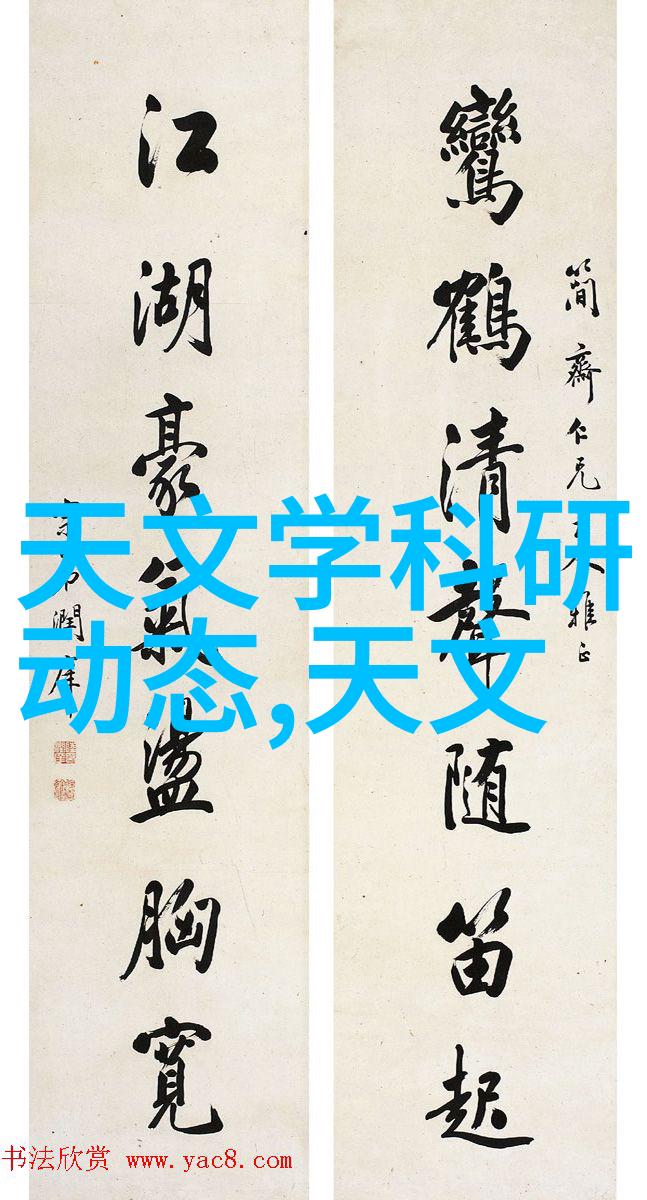 簡齋仁兄大人雅正
鸞鶴清聲随笛起
江湖豪氣盪胸寬
潤庠
天文学科研
动态,天文
书法欣赏 www.yac8.com